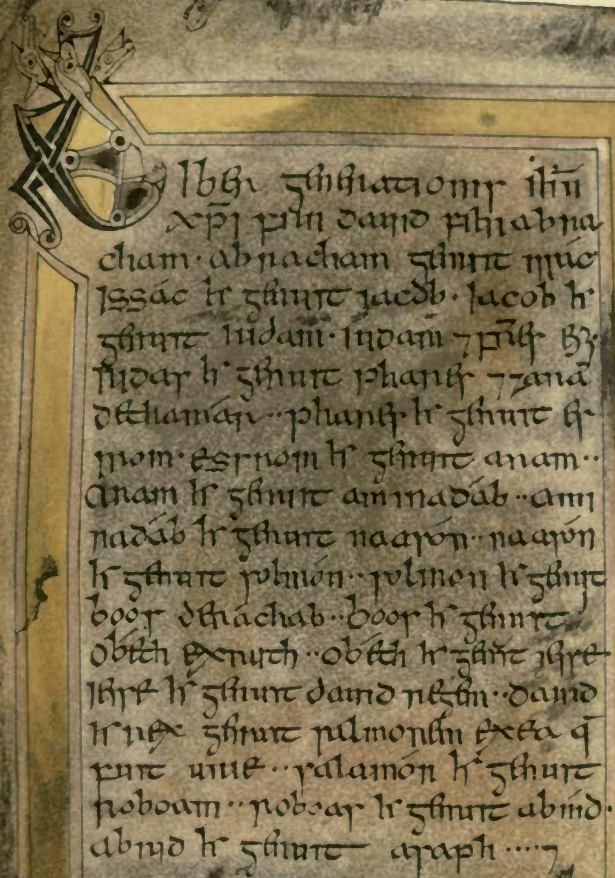 Liber generationis ihū
xp̄i filii david filii abra
cham · abracham genuit isac
issac h' genuit iacob · iacob h'
genuit iudam · iudam ⁊ fr̄es ei·
iudas h' genuit phares ⁊ zarā
dethamar ·· phares h' genuit es
rom · esrom h' genuit aram ··
Aram h' genuit aminadab ·· ami
nadab h' genuit naason ·· naason
h' genuit solmon ·· solmon h' genuit
boos derachab ·· boos h' genuit
obeth exruth ·· obeth h' genuit iesse
iesse h' genuit david regem ·· david
h' rex genuit salmonem exea q̄
fuit urie ·· salamon h' genuit
roboam ·· roboas h' genuit abiud ·
abiud h' genuit asaph ···· ⁊